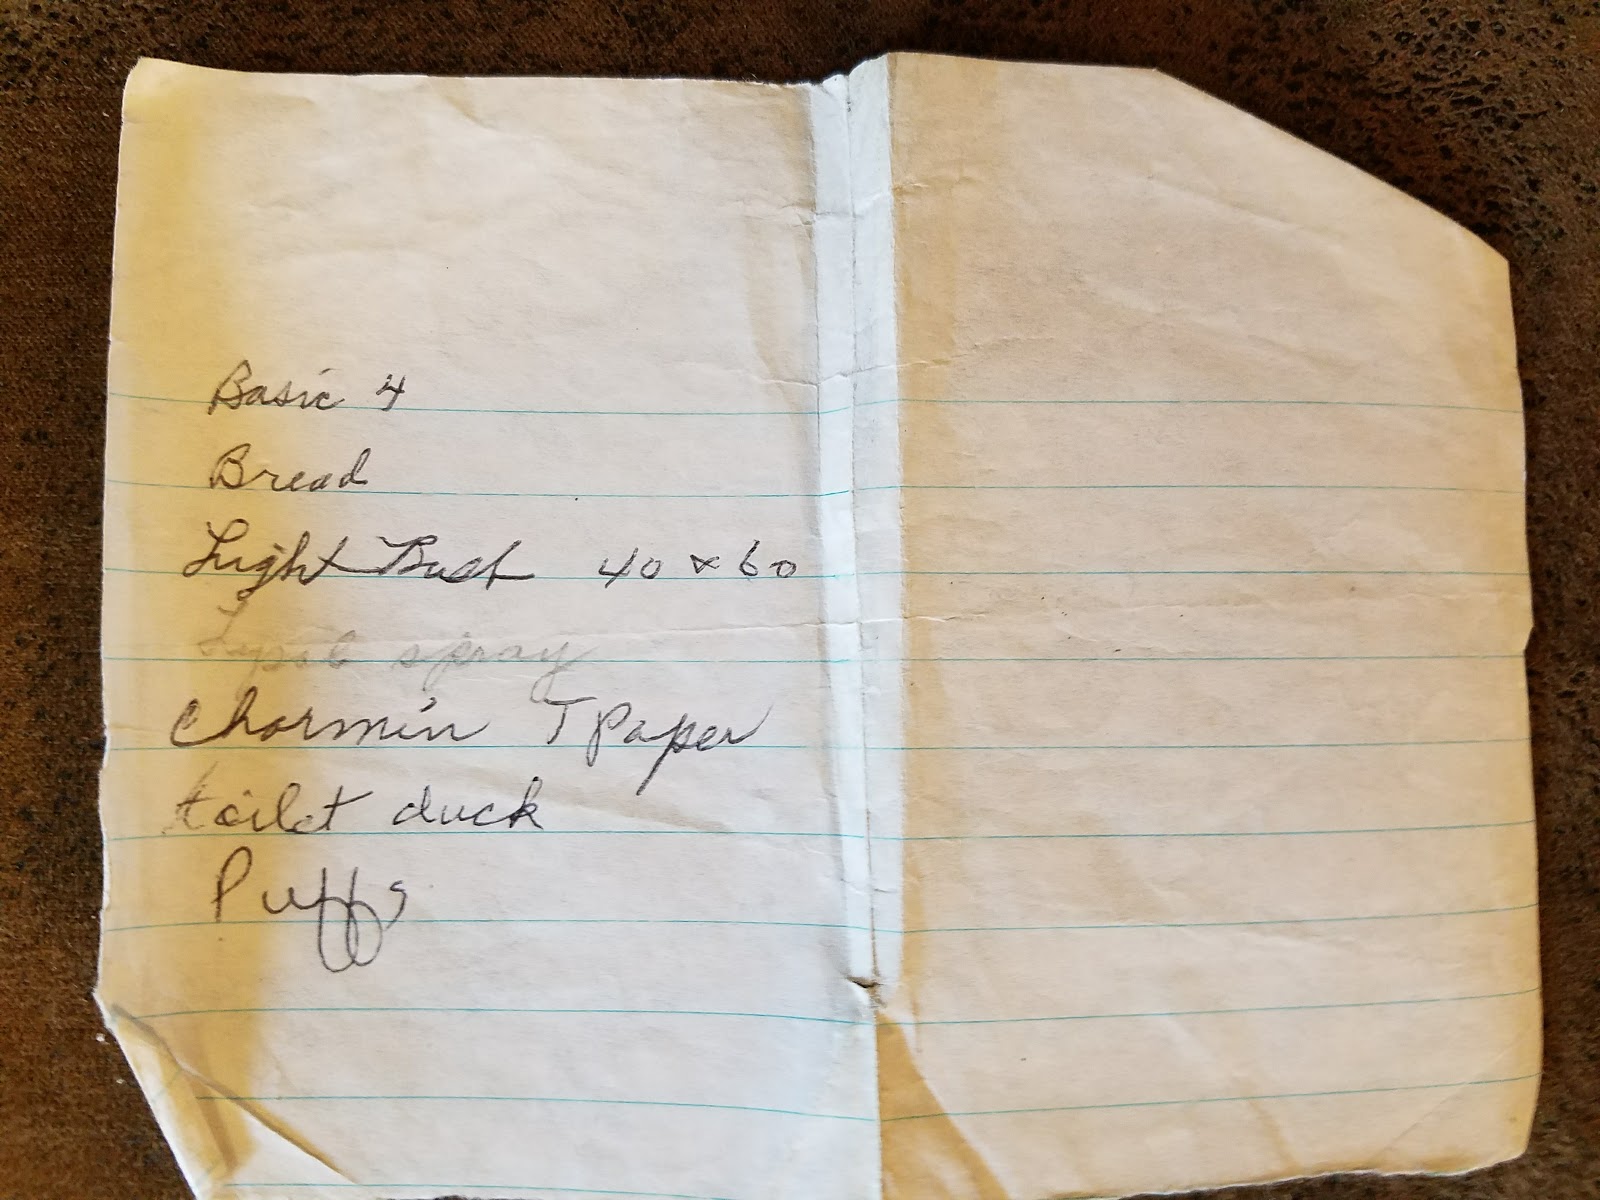 Basic 4
Bread
Light 40 x 60
Lysol spray
Charmin T Paper
toilet duck
Puffs